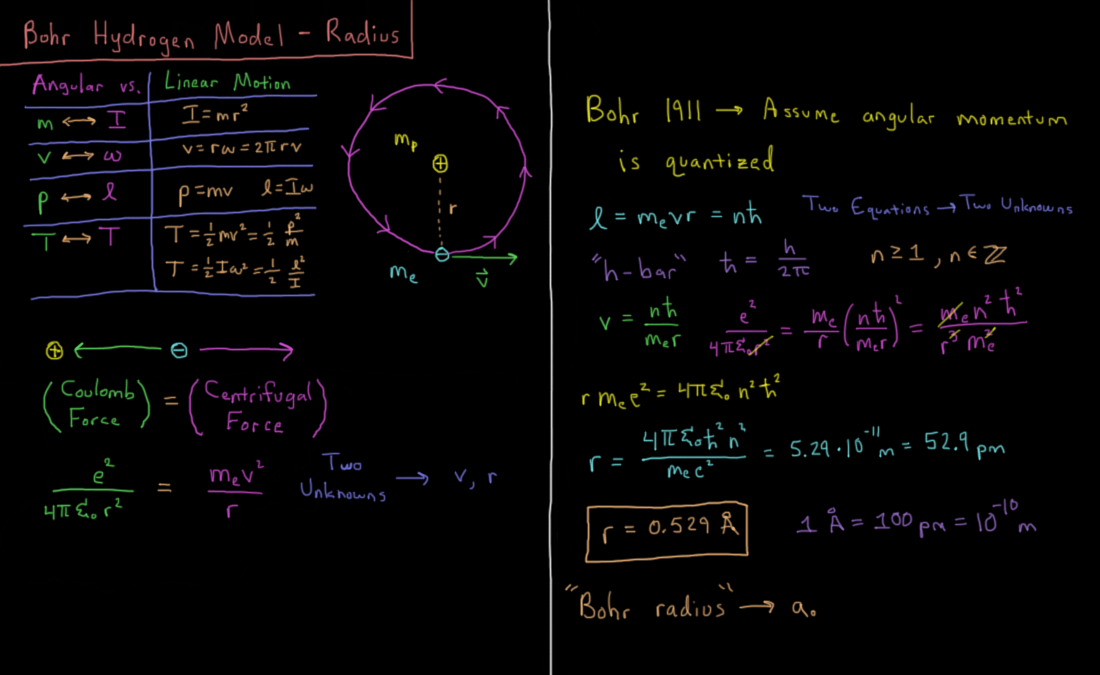 Bohr Hydrogen Model - Radius
Angular vs. Linear Motion
m ↔ I I = mr²
v ↔ ω v = rω = 2πrv
p ↔ l p = mv l = Iω
T ↔ T T = ½mv² = ½ p²/m
T = ½Iω² = ½ l²/I
m_p
⊕
r
⊖
m_e
v⃗
⊕ ← ⊖ →
(Coulomb Force) = (Centrifugal Force)
e²/4πε₀r² = m_e v²/r
Two Unknowns → v, r
Bohr 1911 → Assume angular momentum
is quantized
l = m_e v r = nħ Two Equations → Two Unknowns
"h-bar" ħ = h/2π n ≥ 1, n ∈ ℤ
v = nħ/m_e r e²/4πε₀r² = m_e/r (nħ/m_e r)² = m_e n² ħ²/r³ m_e²
r m_e e² = 4πε₀ n² ħ²
r = 4πε₀ħ² n²/m_e e² = 5.29·10⁻¹¹ m = 52.9 pm
r = 0.529 Å 1 Å = 100 pm = 10⁻¹⁰ m
"Bohr radius" → a₀